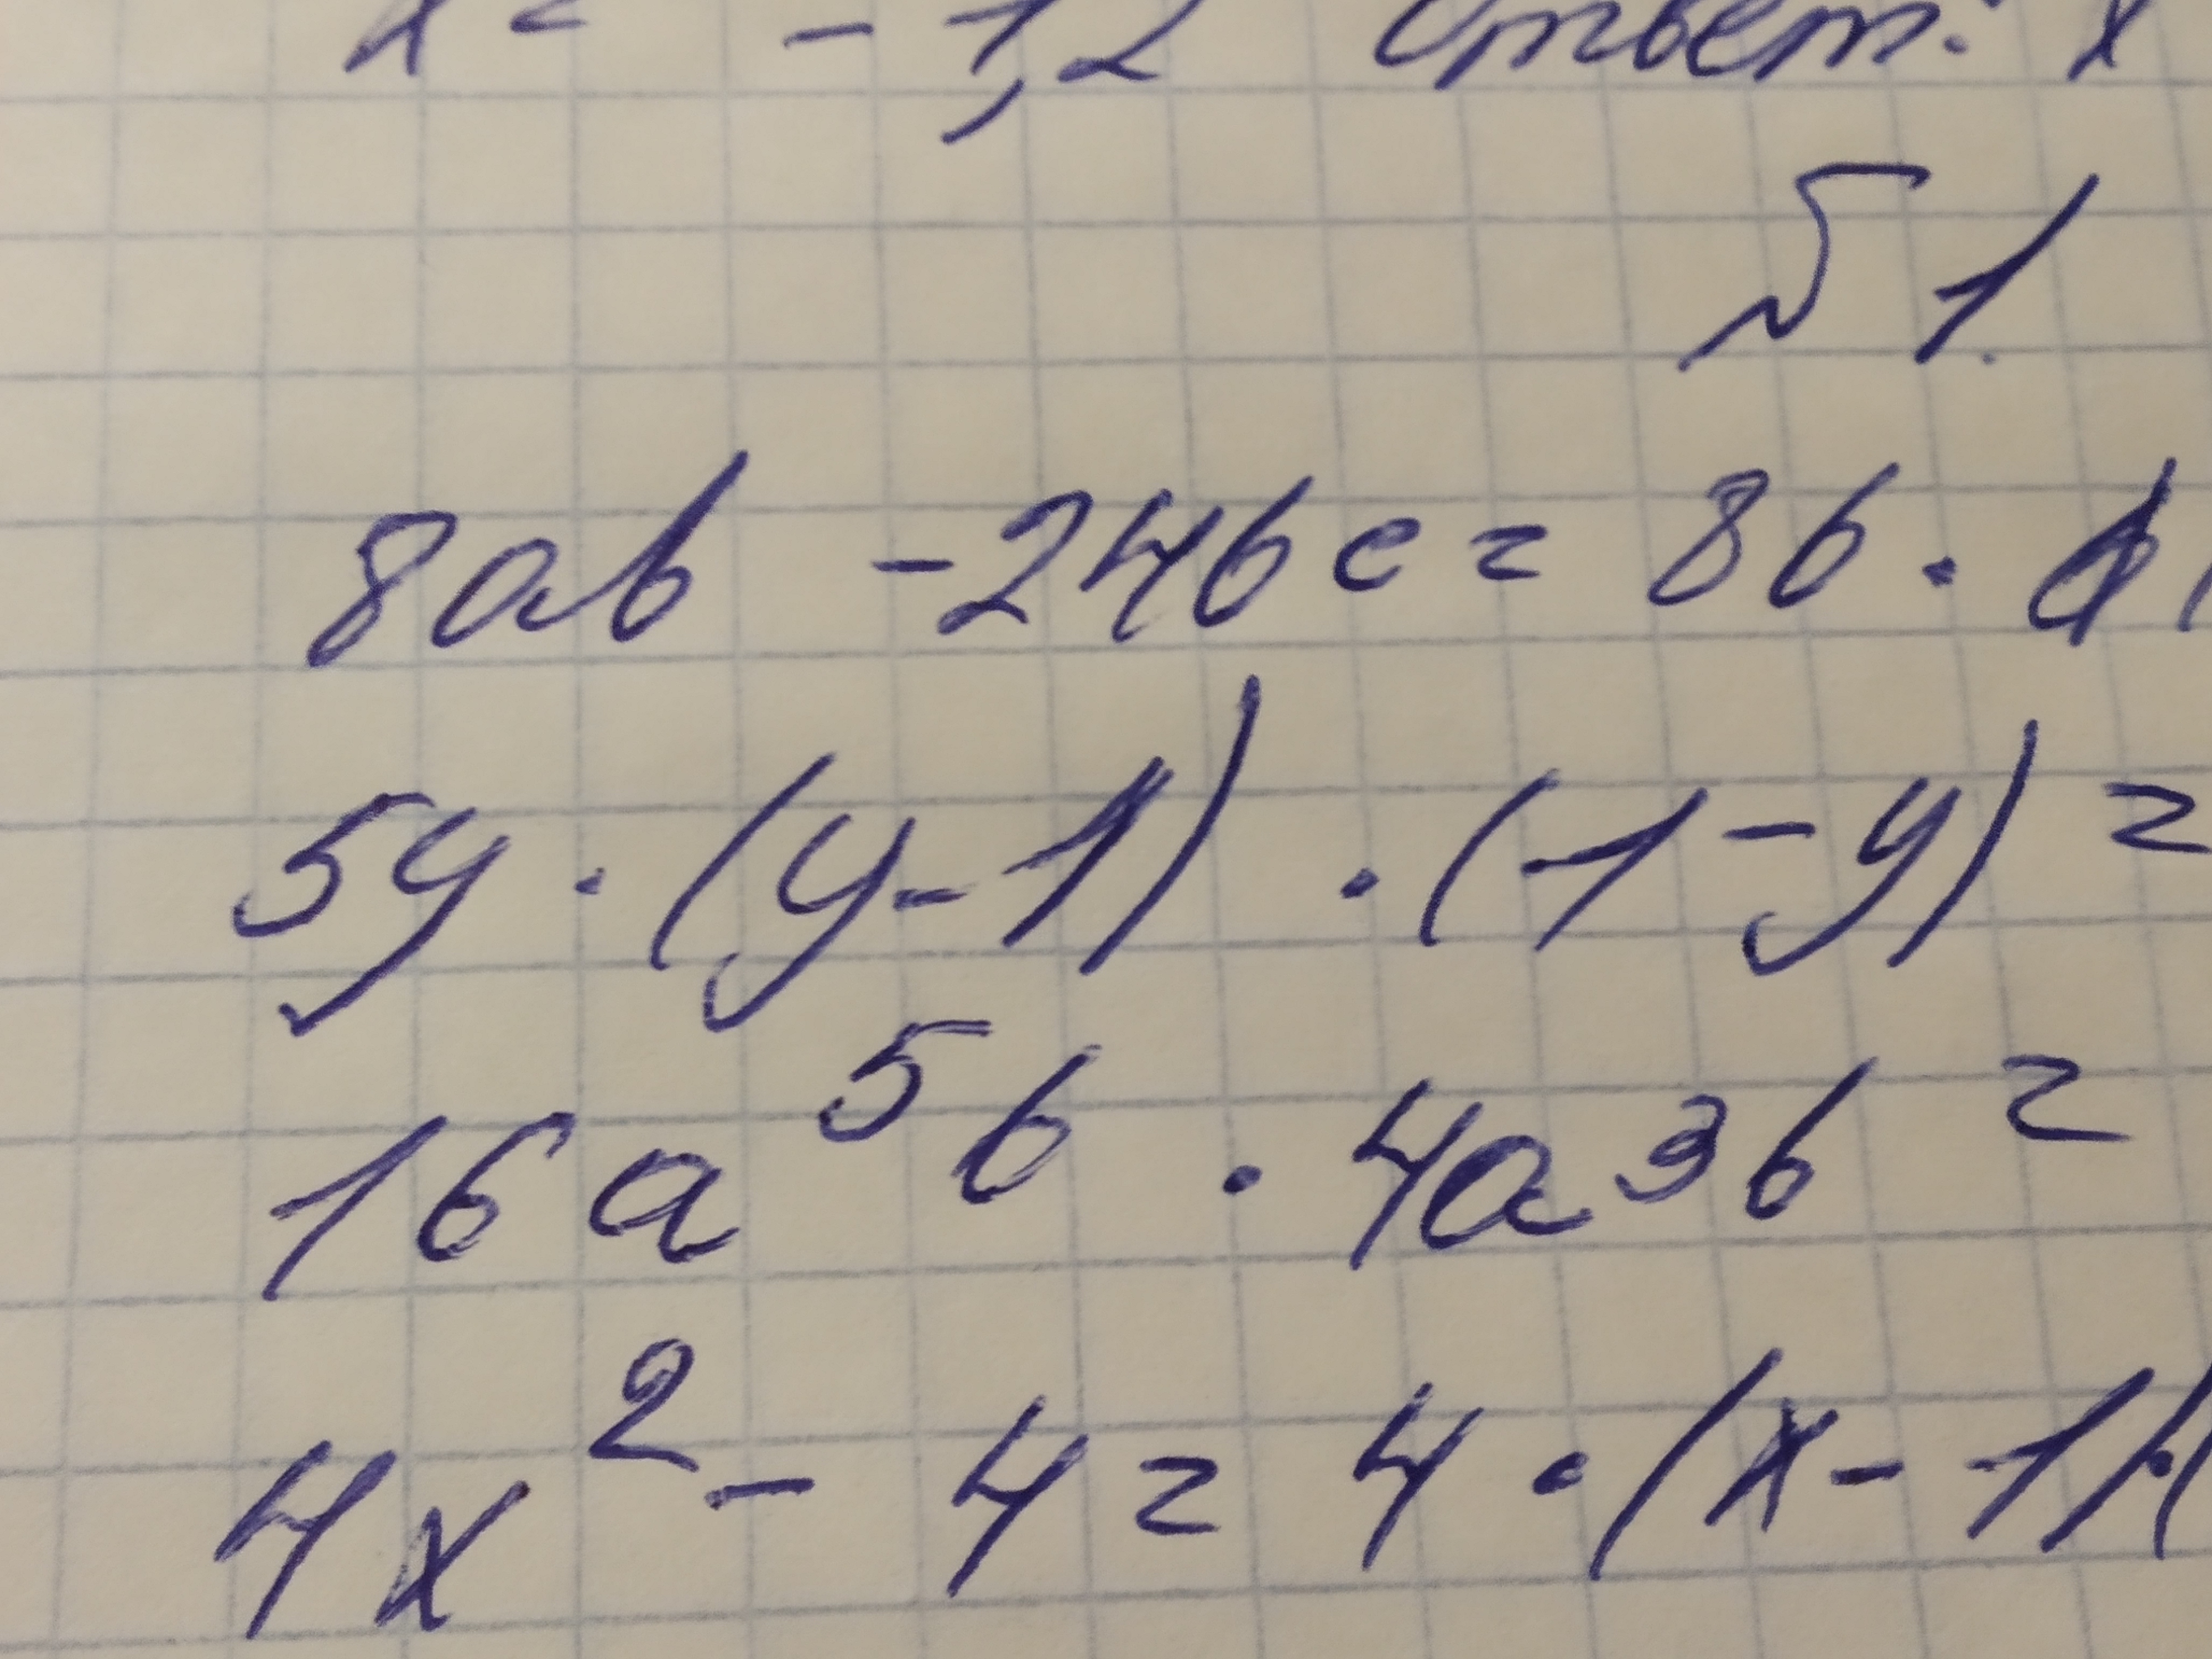 x = -1,2 Ответ: x
№1.
8ab - 24bc = 8b ·
5y · (y-1) · (1-y) =
16a⁵b · 4a³b =
4x² - 4 = 4 · (x-1)·(